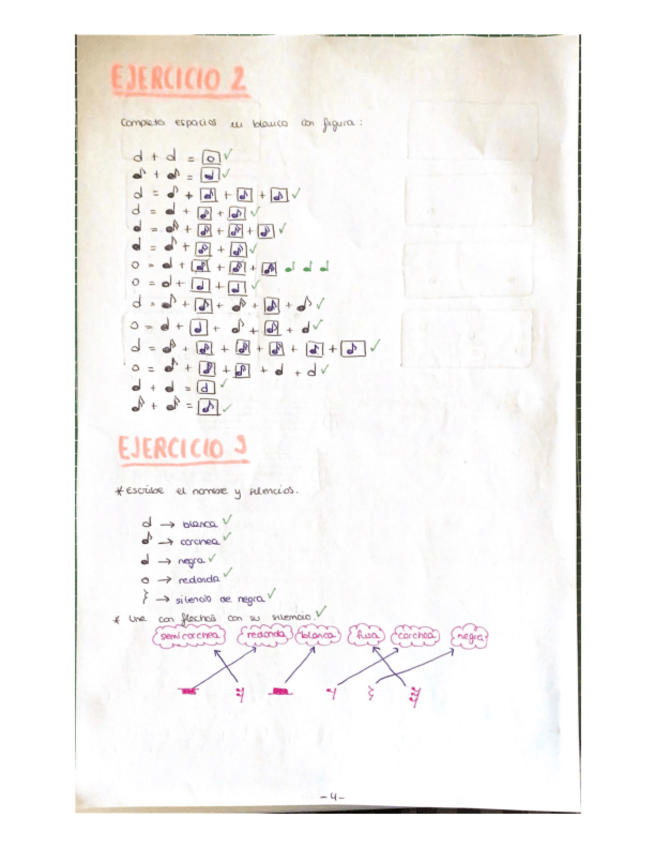 EJERCICIO 2
Completa espacios en blanco con figura:
EJERCICIO 3
* Escribe el nombre y silencios.
→ blanca ✓
→ corchea ✓
→ negra ✓
→ redonda ✓
→ silencio de negra ✓
* Une con flechas con su silencio. ✓
semicorchea redonda blanca fusa corchea negra
-4-